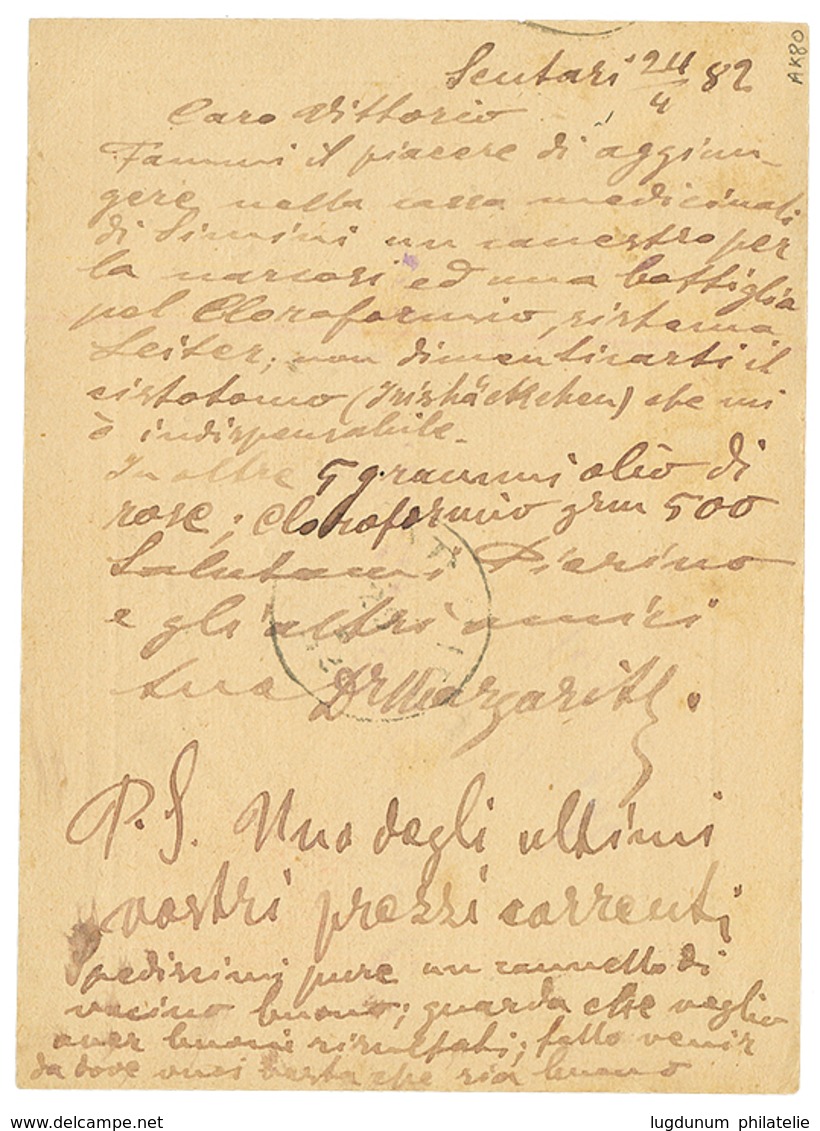 AK80
Scutari 24/4 82
Caro Vittorio
Fammi il piacere di aggiun-
gere nella cassa medicinali
di Simini un canestro per
la narcosi ed una bottiglia
pel Cloroformio, sistema
Leiter; non dimenticarti il
cistotomo (Irishäckchen) che mi
è indispensabile.
Inoltre 5 grammi olio di
rose; cloroformio grm 500
Salutami Pierino
e gli altri amici
tuo Dr Margarit
P.S. Uno degli ultimi
vostri prezzi correnti
spediscimi pure un cannello di
vacino buono; guarda che voglio
aver buoni risultati; fallo venir
da dove vuoi basta che sia buono
www.delcampe.net
lugdunum philatelie